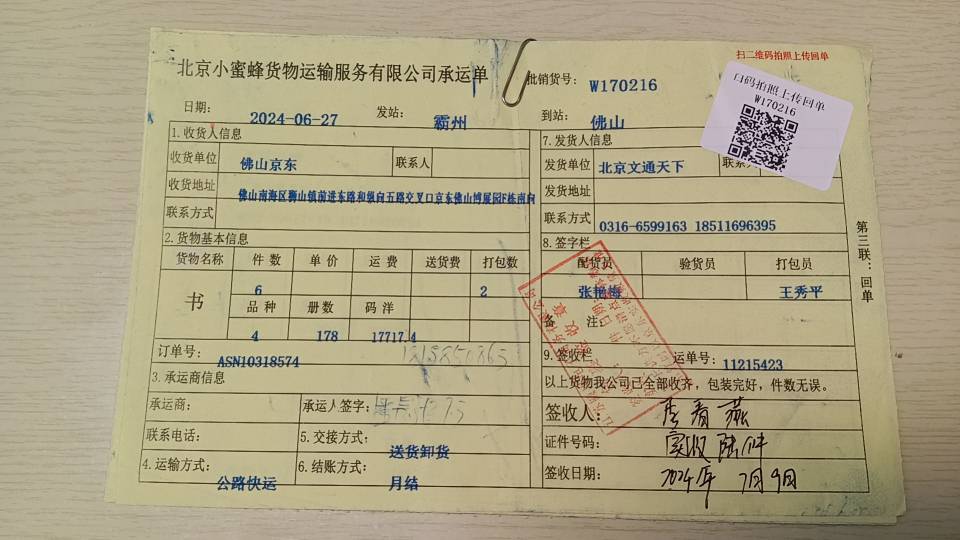 扫二维码拍照上传回单
北京小蜜蜂货物运输服务有限公司承运单
批销货号: W170216
口码拍照上传回单
W170216
日期: 2024-06-27 发站: 霸州 到站: 佛山
1.收货人信息 7.发货人信息
收货单位 佛山京东 联系人 发货单位 北京文通天下 联系
收货地址 佛山南海区狮山镇前进东路和纵向五路交叉口京东佛山博展园F栋南向 发货地址
联系方式 联系方式 0316-6599163 18511696395
2.货物基本信息 8.签字栏
货物名称 件数 单价 运费 送货费 打包数 配货员 验货员 打包员
书 6 2 张艳梅 王秀平
品种 册数 码洋 备注:
4 178 17717.4
订单号: ASN10318574 9.签收栏 运单号: 11215423
3.承运商信息 以上货物我公司已全部收齐，包装完好，件数无误。
承运商: 承运人签字: 签收人: 李看燕
联系电话: 5.交接方式: 送货卸货 证件号码: 实收陆件
4.运输方式: 公路快运 6.结账方式: 月结 签收日期: 2024年 7月9日
第三联：回单